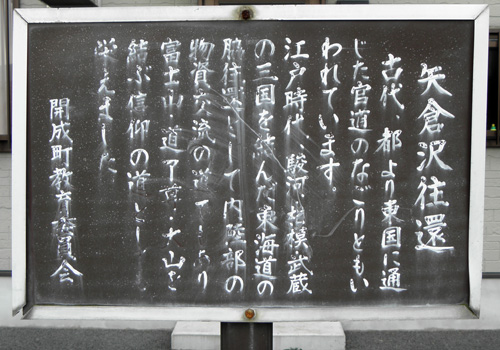 矢倉沢往還
古代、都より東国に通
じた官道のなごりともい
われています。
江戸時代、駿河・相模・武蔵
の三国を結んだ東海道の
脇往還として内陸部の
物資交流の道であり
富士山・道了尊・大山を
結ぶ信仰の道として
栄えました
開成町教育委員会